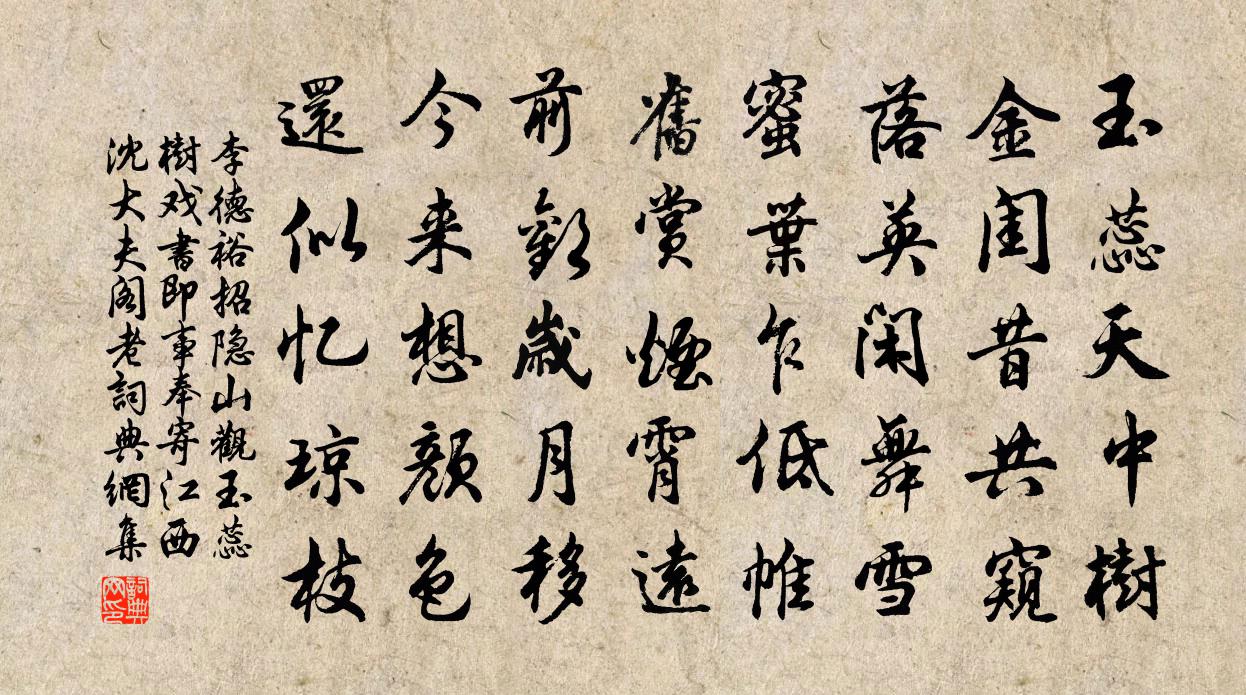 玉蕊天中樹
金閨昔共窺
落英閑舞雪
蜜葉乍低帷
舊賞煙霄遠
前歡歳月移
今来想顔色
還似忆琼枝
李德裕招隐山觀玉蕊
樹戏書即事奉寄江西
沈大夫阁老詞典網集
詞典网印